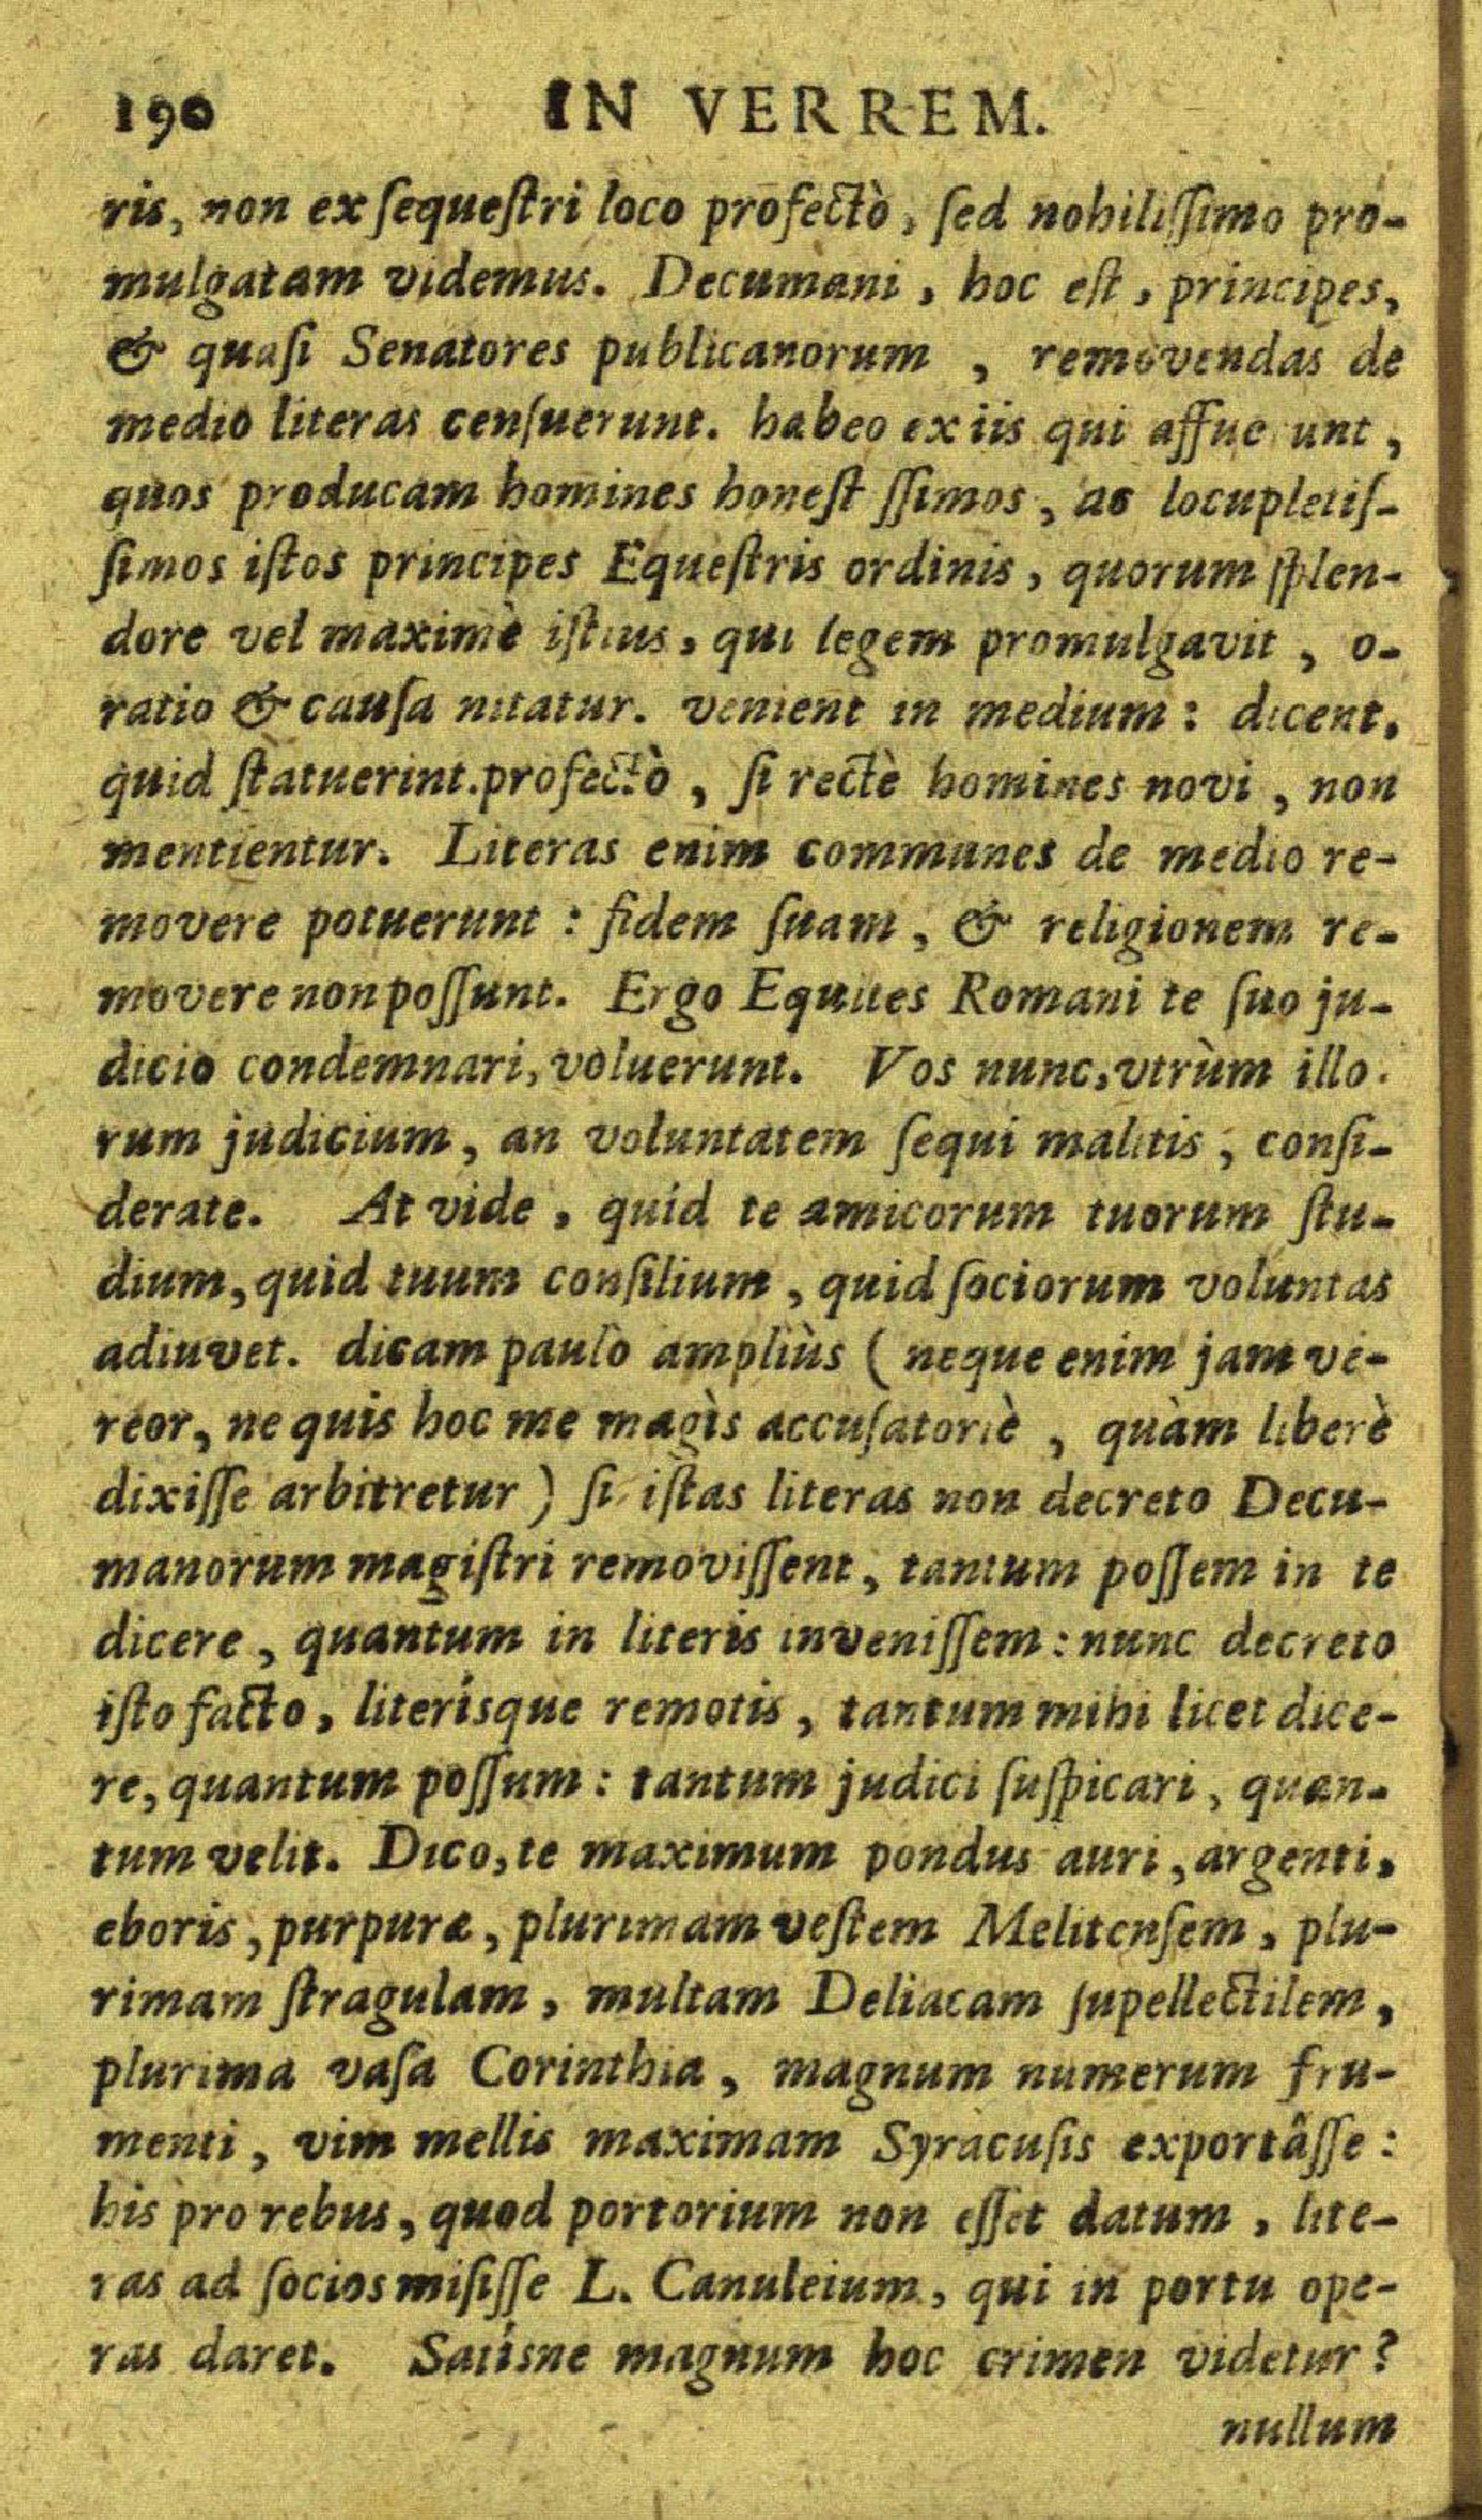 190 IN VERREM.
ris, non ex ſequeſtri loco profectò, ſed nobiliſſimo pro-
mulgatam videmus. Decumani, hoc eſt, principes,
& quaſi Senatores publicanorum, removendas de
medio literas cenſuerunt. habeo ex iis qui affue unt,
quos producam homines honeſt ſſimos, ac locupletiſ-
ſimos iſtos principes Equeſtris ordinis, quorum ſplen-
dore vel maximè iſtius, qui legem promulgavit, o-
ratio & cauſa nitatur. venient in medium: dicent,
quid ſtatuerint. profectò, ſi rectè homines novi, non
mentientur. Literas enim communes de medio re-
movere potuerunt: fidem ſuam, & religionem re-
movere non poſſunt. Ergo Equites Romani te ſuo ju-
dicio condemnari, voluerunt. Vos nunc, vtrùm illo.
rum judicium, an voluntatem ſequi malitis, conſi-
derate. At vide, quid te amicorum tuorum ſtu-
dium, quid tuum conſilium, quid ſociorum voluntas
adiuvet. dicam paulò ampliùs (neque enim jam ve-
reor, ne quis hoc me magìs accuſatoriè, quàm liberè
dixiſſe arbitretur) ſi iſtas literas non decreto Decu-
manorum magiſtri removiſſent, tantum poſſem in te
dicere, quantum in literis inveniſſem: nunc decreto
iſto facto, literiſque remotis, tantum mihi licet dice-
re, quantum poſſum: tantum judici ſuſpicari, quan-
tum velit. Dico, te maximum pondus auri, argenti,
eboris, purpuræ, plurimam veſtem Melitenſem, plu-
rimam ſtragulam, multam Deliacam ſupellectilem,
plurima vaſa Corinthia, magnum numerum fru-
menti, vim mellis maximam Syracuſis exportâſſe:
his pro rebus, quod portorium non eſſet datum, lite-
ras ad ſocios miſiſſe L. Canuleium, qui in portu ope-
ras daret. Satísne magnum hoc crimen videtur?
nullum